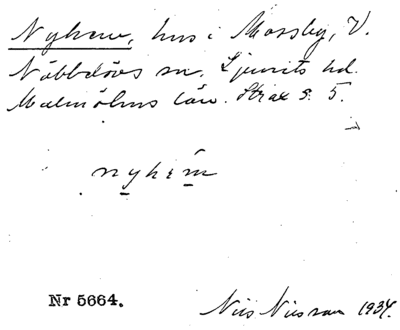 Nyhem, hus i Mossby, V.
Nöbbelövs sn. Ljunits hd.
Malmöhus län. Strax s. 5.
nyhem
Nr 5664.
Nils Nilsson 1934.